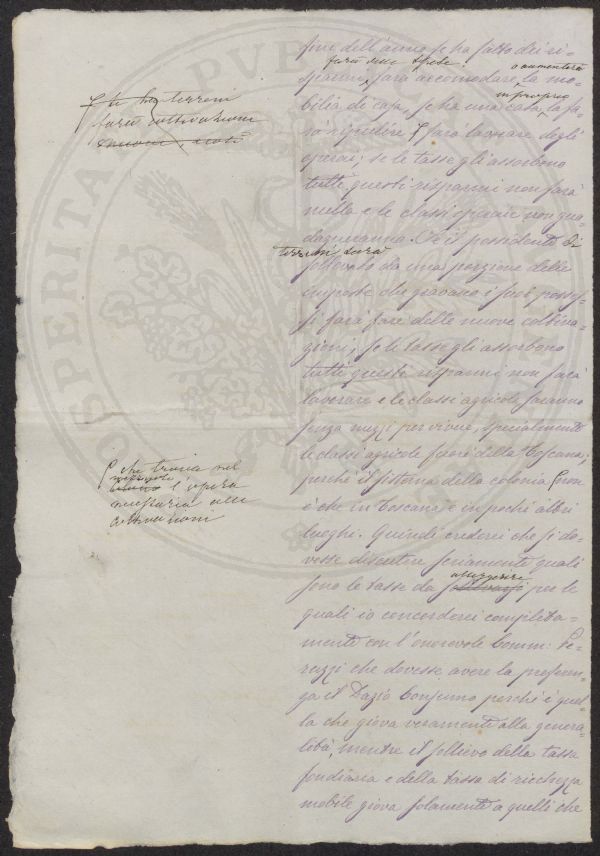 fine dell'anno se ha fatto dei ri-
farà delle spese o aumenterà
sparmi, farà accomodare, la mo-
in proprio
bilia di casa, se ha una casa, la fa-
rà ripulire farà lavorare degli
operai; se le tasse gli assorbono
tutti questi risparmi non farà
nulla e le classi operaie non gua-
dagneranno. Se il possidente di
terreni sarà
sollevato da una porzione delle
imposte che gravano i suoi posses-
si farà fare delle nuove coltiva-
zioni; se le tasse gli assorbono
tutti questi risparmi non farà
lavorare e le classi agricole saranno
senza mezzi per vivere, specialmente
le classi agricole fuori della Toscana;
perchè il sistema della colonia non
è che in Toscana e in pochi altri
luoghi. Quindi crederei che si do-
vesse discutere seriamente quali
sono le tasse da per le
quali io concorderei completa-
mente con l'onorevole Comm: Pe-
ruzzi che dovesse avere la preferen-
za il Dazio Consumo perchè è quel-
la che giova veramente alla genera-
lità, mentre il sollievo della tassa
fondiaria e della tassa di ricchezza
mobile giova solamente a quelli che
se ha terreni
farà coltivazione
che trova nel
l'opera
necessaria alle
coltivazioni